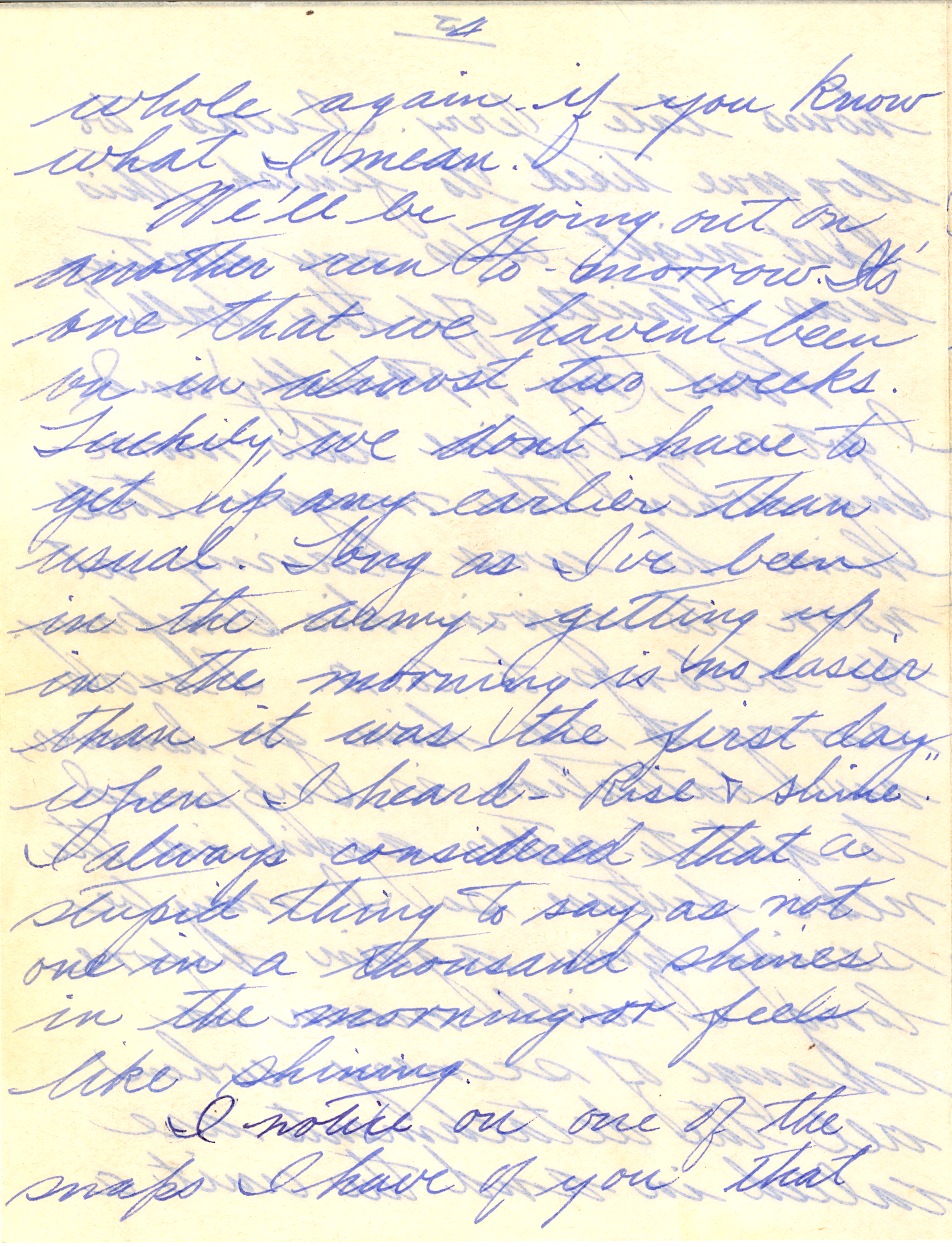 4
whole again - if you know
what I mean.
We'll be going out on
another run to-morrow. It's
one that we haven't been
on in almost two weeks.
Luckily, we don't have to
get up any earlier than
usual. Long as I've been
in the army, getting up
in the morning is no easier
than it was the first day
when I heard - "Rise & shine".
I always considered that a
stupid thing to say, as not
one in a thousand shines
in the morning or feels
like shining.
I notice on one of the
snaps I have of you that